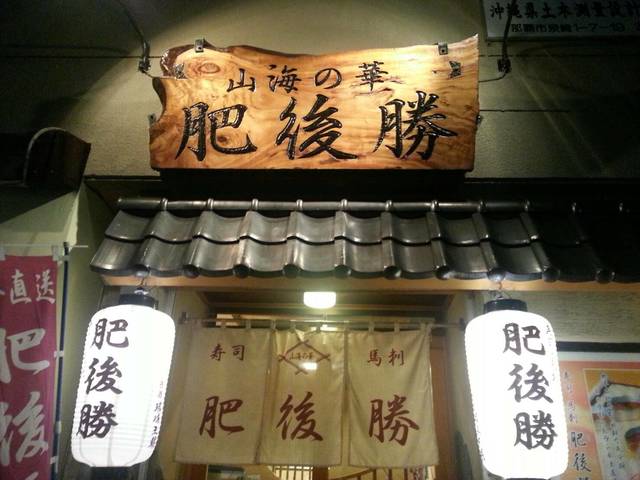 沖縄県土木測量設計
那覇市泉崎1-7-19
山海の華
肥後勝
直送
肥後
寿司
山海の華
馬刺
肥後勝
肥後勝
肥後勝
肥後